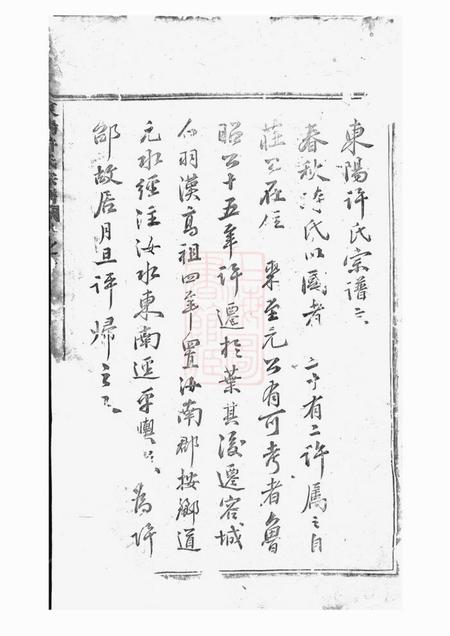 東陽許氏宗譜
春秋許氏以國者 有二許屬之自
莊公在位 至元公有可考者魯
昭公十五年許遷於葉其後遷容城
白羽漢高祖四年置汝南郡按酈道
元水經注汝水東南逕平輿 為許
邵故居月旦評歸之